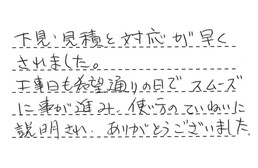 下見・見積と対応が早く
されました。
工事日も希望通りの日でスムーズ
に事が進み、使い方のていねいに
説明され、ありがとうございました